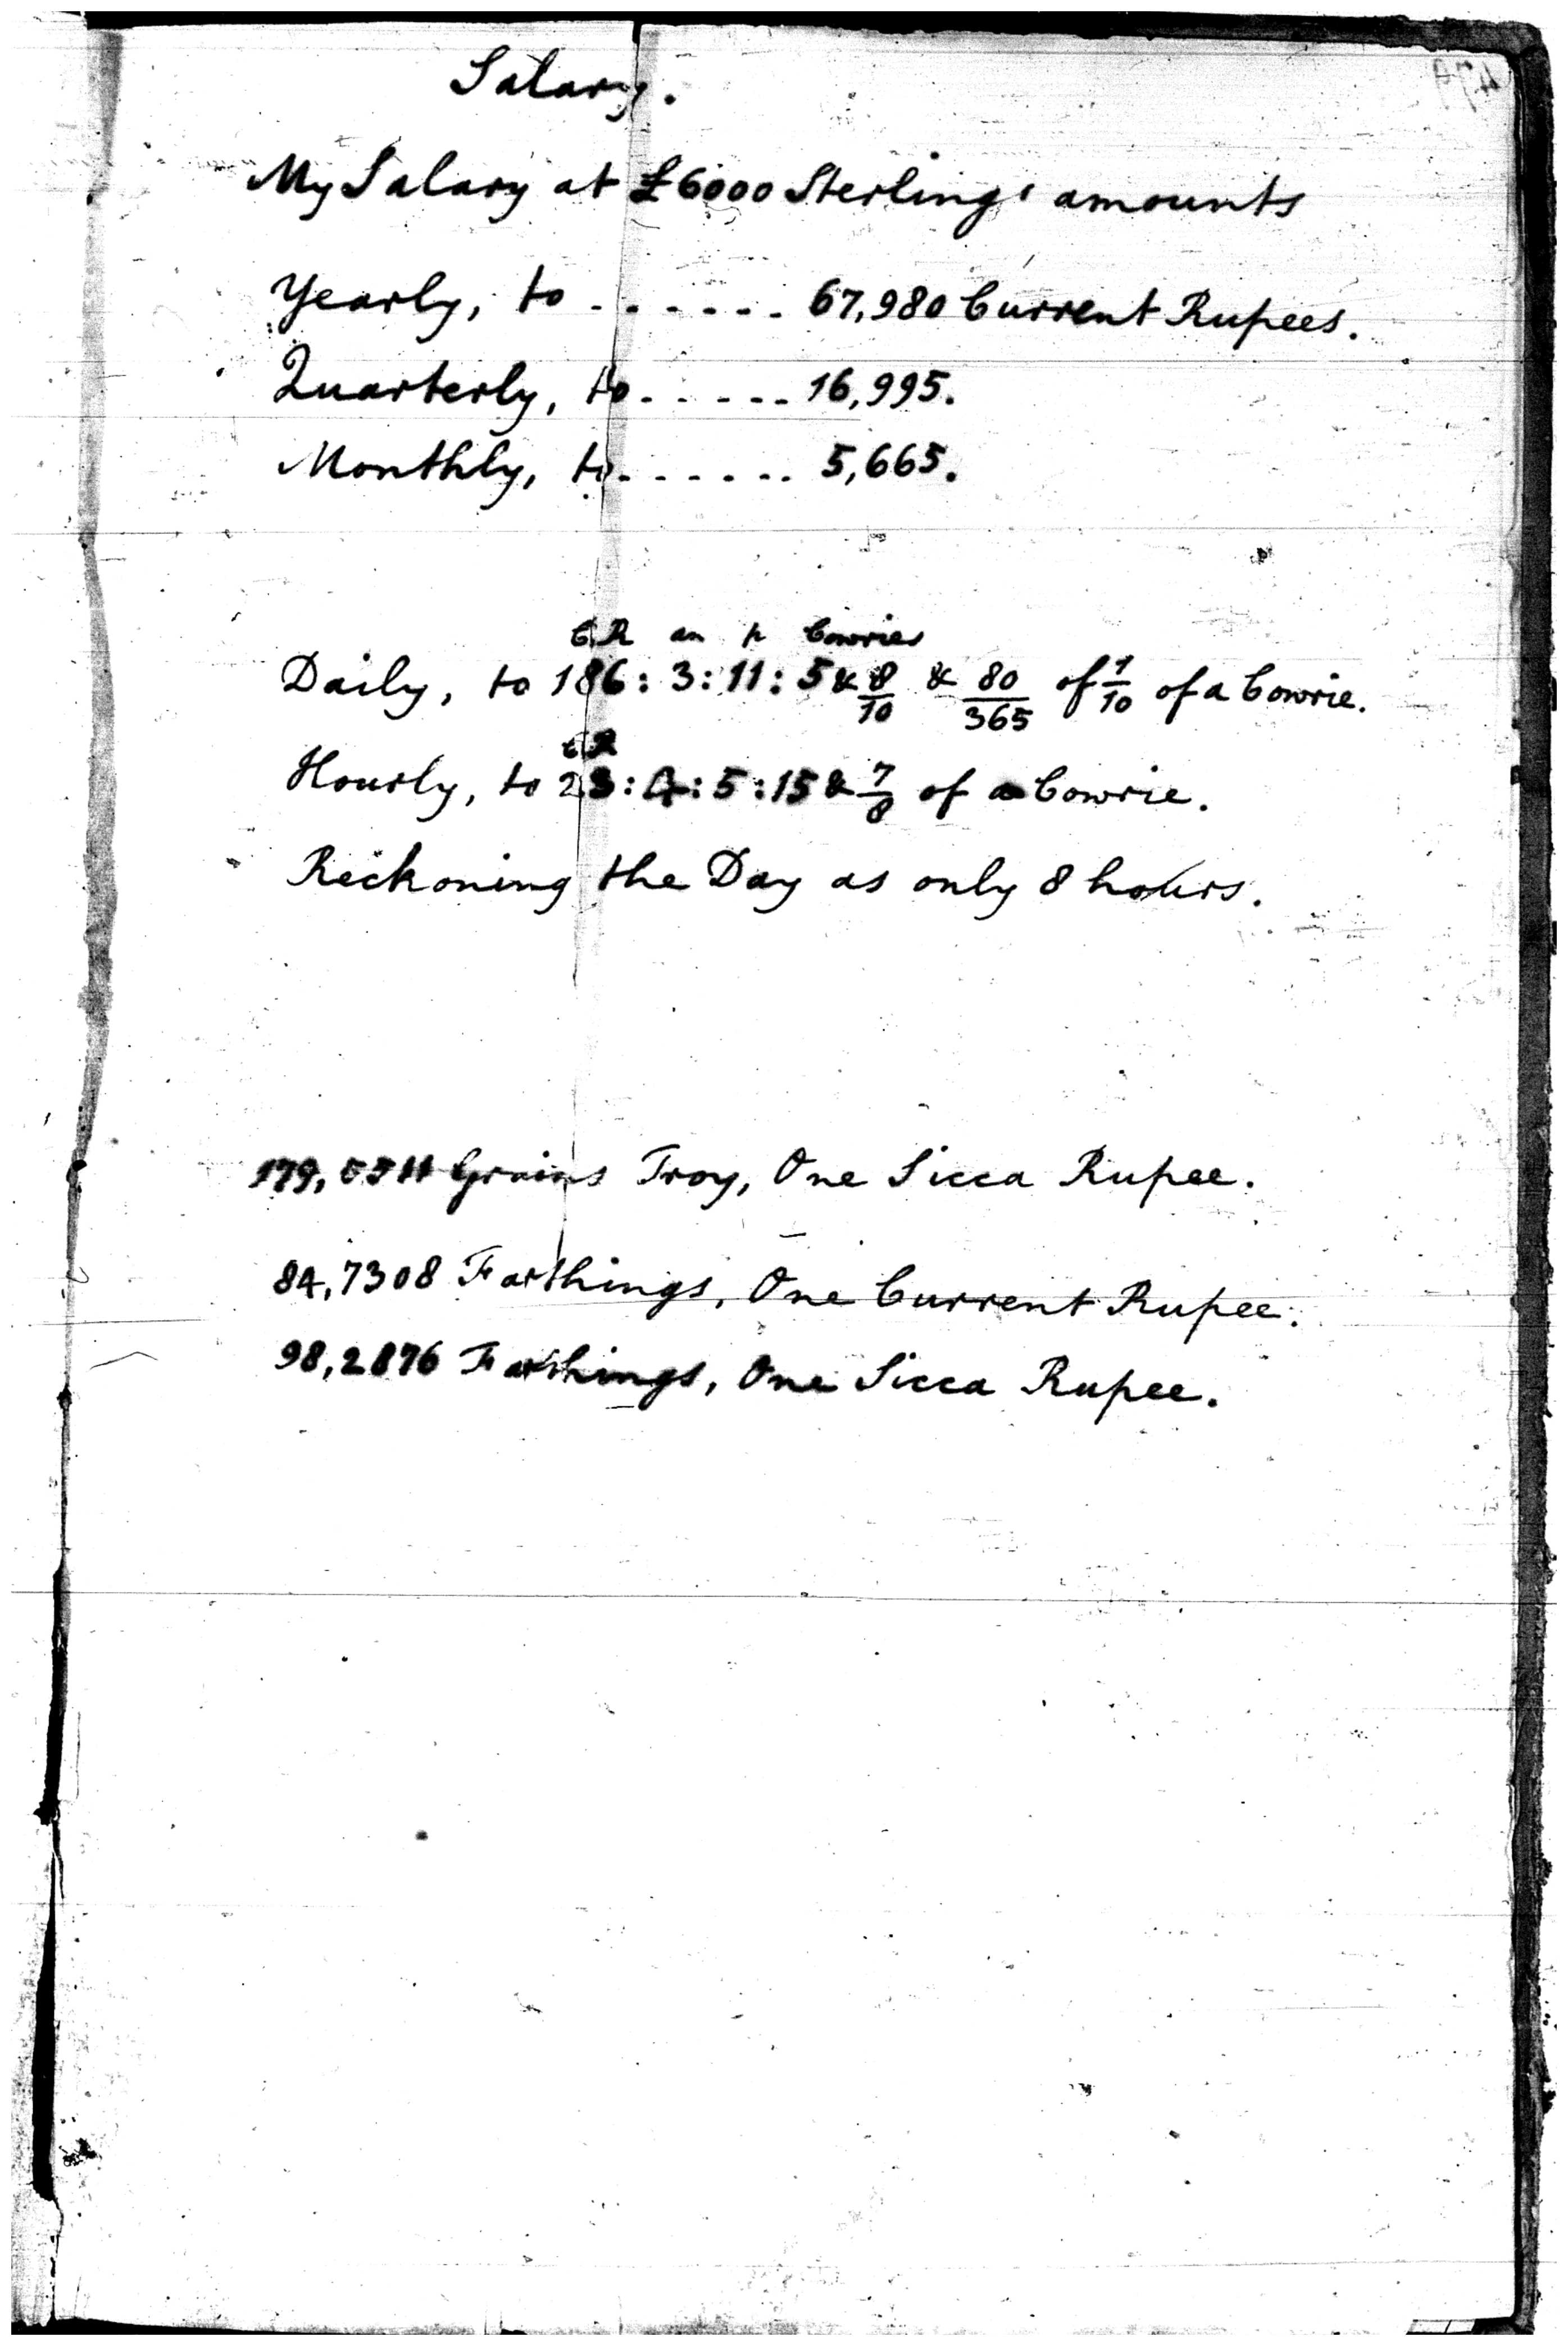 Salary.
My Salary at £6000 Sterling, amounts
Yearly, to - - - - - - 67,980 Current Rupees.
Quarterly, to - - - - - 16,995.
Monthly, to - - - - - - 5,665.
CR an p Cowries
Daily, to 186 : 3 : 11 : 5 & 8/10 & 80/365 of 1/10 of a Cowrie.
CR
Hourly, to 23 : 4 : 5 : 15 & 7/8 of a Cowrie.
Reckoning the Day as only 8 hours.
Grains Troy, One Sicca Rupee.
84,7308 Farthings, One Current Rupee.
98,2876 Farthings, One Sicca Rupee.